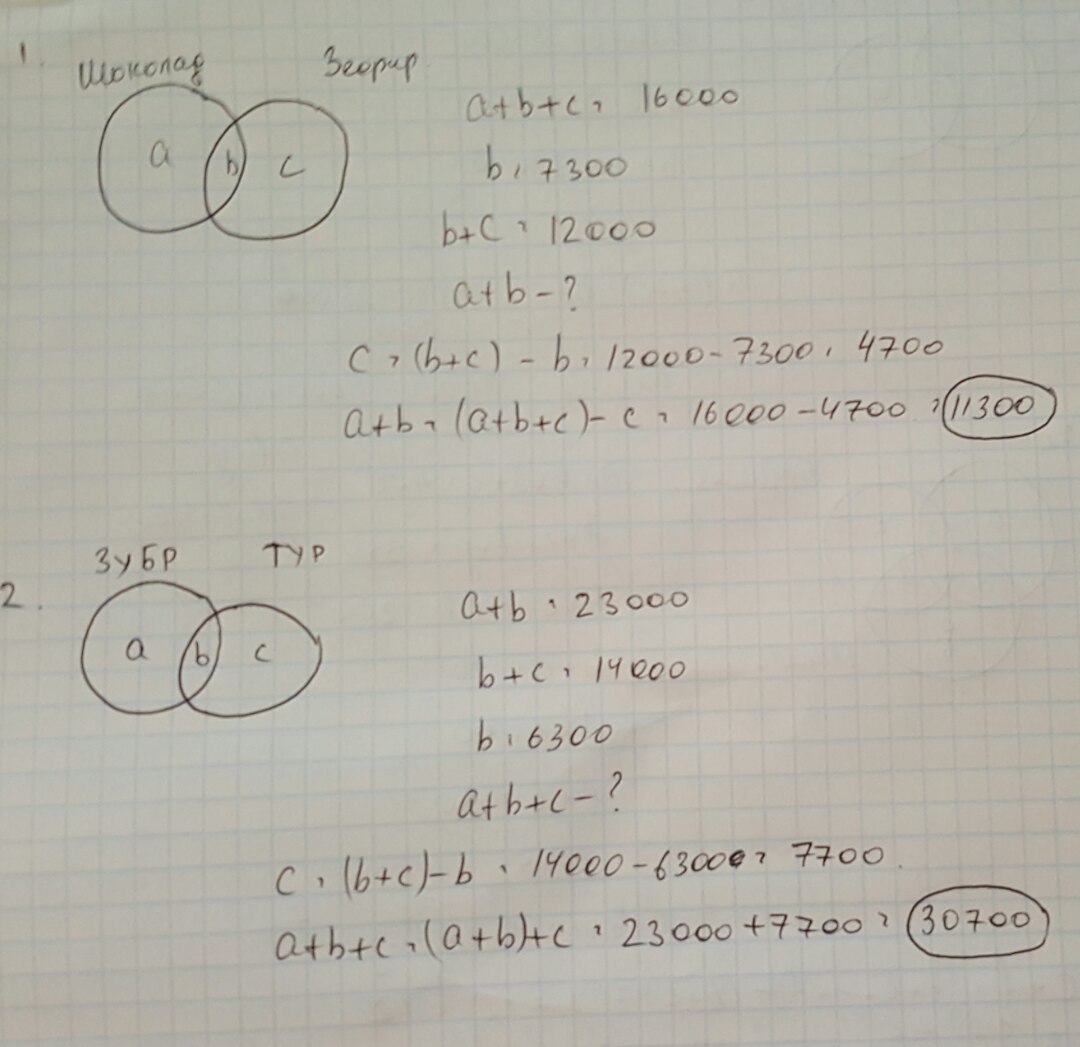 1.
Шоколад Зефир
a b c
a+b+c = 16000
b = 7300
b+c = 12000
a+b - ?
c = (b+c) - b = 12000 - 7300 = 4700
a+b = (a+b+c) - c = 16000 - 4700 = 11300
2.
ЗУБР ТУР
a b c
a+b = 23000
b+c = 14000
b = 6300
a+b+c - ?
c = (b+c) - b = 14000 - 6300 = 7700
a+b+c = (a+b)+c = 23000 + 7700 = 30700